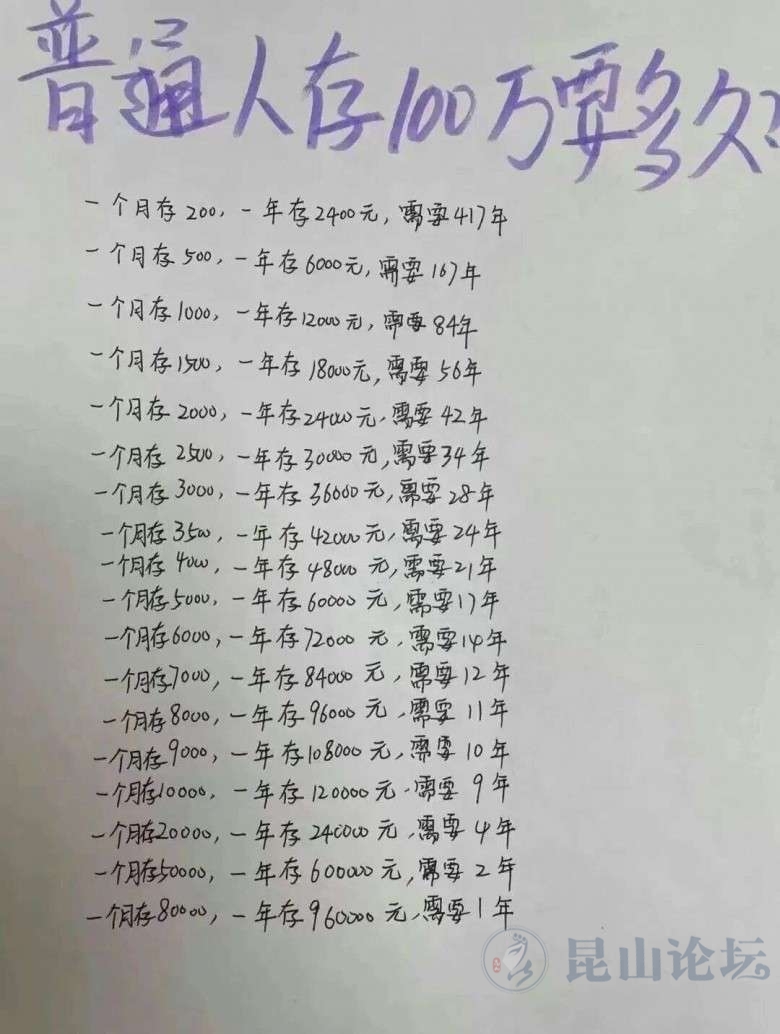 普通人存100万要多久?
一个月存200,一年存2400元,需要417年
一个月存500,一年存6000元,需要167年
一个月存1000,一年存12000元,需要84年
一个月存1500,一年存18000元,需要56年
一个月存2000,一年存24000元,需要42年
一个月存2500,一年存30000元,需要34年
一个月存3000,一年存36000元,需要28年
一个月存3500,一年存42000元,需要24年
一个月存4000,一年存48000元,需要21年
一个月存5000,一年存60000元,需要17年
一个月存6000,一年存72000元,需要14年
一个月存7000,一年存84000元,需要12年
一个月存8000,一年存96000元,需要11年
一个月存9000,一年存108000元,需要10年
一个月存10000,一年存120000元,需要9年
一个月存20000,一年存240000元,需要4年
一个月存50000,一年存600000元,需要2年
一个月存80000,一年存960000元,需要1年
昆山论坛